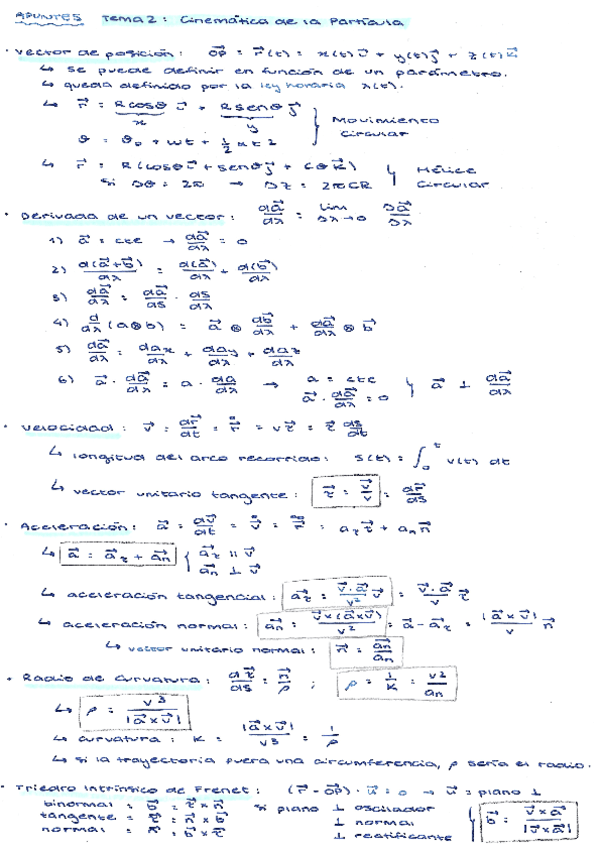 APUNTES Tema 2: Cinemática de la Partícula
· Vector de posición: OP⃗ = r⃗(t) = x(t)i⃗ + y(t)j⃗ + z(t)k⃗
↳ se puede definir en función de un parámetro.
↳ queda definido por la ley horaria λ(t).
↳ r⃗ = Rcosθ i⃗ + Rsenθ j⃗ } Movimiento circular
x y
θ = θ₀ + ωt + ½αt2
↳ r⃗ = R(cosθi⃗ + senθj⃗ + cθk⃗) } Hélice circular
si Δθ = 2π → Δz = 2πCR
· Derivada de un vector: da⃗/dλ = lim Δλ→0 Δa⃗/Δλ
1) a⃗ = cte → da⃗/dλ = 0
2) d(a⃗+b⃗)/dλ = d(a⃗)/dλ + d(b⃗)/dλ
3) da⃗/dλ = da⃗/ds · ds/dλ
4) d/dλ (a⊗b) = a⃗ ⊗ db⃗/dλ + da⃗/dλ ⊗ b⃗
5) da⃗/dλ = dax/dλ + day/dλ + daz/dλ
6) a⃗ · da⃗/dλ = a · da/dλ → a = cte, a⃗ · da⃗/dλ = 0 } a⃗ ⊥ da⃗/dλ
· Velocidad: v⃗ = dr⃗/dt = r⃗° = vτ⃗ = τ⃗ ds/dt
↳ longitud del arco recorrido: s(t) = ∫₀ᵗ v(t) dt
↳ vector unitario tangente: τ⃗ = v⃗/v = dr⃗/ds
· Aceleración: a⃗ = dv⃗/dt = v⃗° = r⃗°° = aττ⃗ + ann⃗
↳ a⃗ = a⃗τ + a⃗n { a⃗τ || v⃗
a⃗n ⊥ v⃗
↳ aceleración tangencial: a⃗τ = (v⃗·a⃗/v²) v⃗ = (v⃗·a⃗/v) τ⃗
↳ aceleración normal: a⃗n = v⃗x(a⃗xv⃗)/v² = a⃗ - a⃗τ = (|a⃗xv⃗|/v) n⃗
↳ vector unitario normal: n⃗ = a⃗n/an
· Radio de curvatura: dτ⃗/ds = n⃗/ρ ; ρ = 1/K = v2/an
↳ ρ = v3/|a⃗xv⃗|
↳ curvatura: K = |a⃗xv⃗|/v3 = 1/ρ
↳ si la trayectoria fuera una circumferencia, ρ sería el radio.
· Triedro Intrínsico de Frenet: (r⃗-OP⃗)·u⃗ = 0 → u⃗ = plano ⊥
binormal = b⃗ = τ⃗xn⃗ si plano ⊥ oscilador { b⃗ = v⃗xa⃗/|v⃗xa⃗|
tangente = τ⃗ = n⃗xb⃗ ⊥ normal
normal = n⃗ = b⃗xτ⃗ ⊥ rectificante